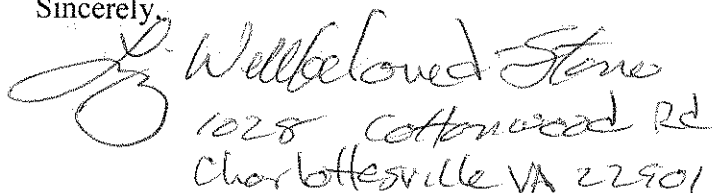 Sincerely,
Liz Wellbeloved-Stone
1028 Cottonwood Rd
Charlottesville VA 22901